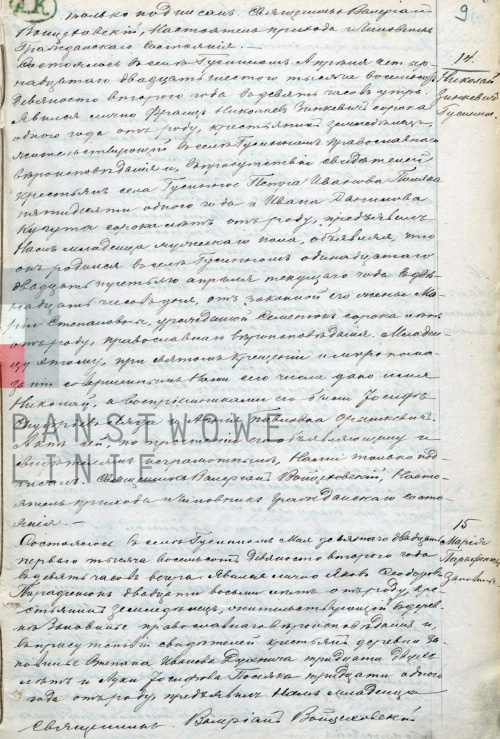 А.К.
9
только подписан. Священникъ Валеріай
Войцѣховскій, Настоятель прихода и Чиновникъ
Гражданскаго Состоянія. —
14.
Николай
Зинкевичъ
Гусинное.
Состоялось въ селѣ Гусинномъ Апрѣля
надцатаго двадцать шестого тысяча восемьсотъ
девяносто второго года въ девять часовъ утра.
Явился лично Францъ Николаевъ Зинкевичъ сорока
одного года отъ роду, крестьянинъ земледѣлецъ,
жительствующій въ селѣ Гусинномъ православнаго
вѣроисповѣданія и, въ присутствіи свидѣтелей
крестьянъ села Гусинного Петра Иванова
пятидесяти одного года и Ивана Данилова
сорока лѣтъ отъ роду, предъявилъ
Намъ младенца мужескаго пола, объявляя, что
онъ родился въ селѣ Гусинномъ одинадцатаго
двадцать третьяго апрѣля текущаго года въ
надцать часовъ дня, отъ законной его жены Ма-
ріи Степановны, урожденной Семенюкъ сорока лѣтъ
отъ роду, православнаго вѣроисповѣданія. Младен-
цу этому, при святомъ крещеніи и мѵропома-
заніи совершенныхъ Нами его числа дано имя
Николай, а воспріемниками его были Іосифъ
и Марія Павловна
Актъ сей, по прочтеніи его объявляющему и
свидѣтелямъ неграмотнымъ, Нами только под-
писанъ. Священникъ Валеріай Войцѣховскій, Насто-
ятель прихода и Чиновникъ Гражданскаго состо-
янія. —
15
Марія
Парафенюкъ
Заповѣнье.
Состоялось въ селѣ Гусинномъ Мая девятаго двадцать
перваго тысяча восемьсотъ девяносто второго года
въ девять часовъ вечера. Явился лично Яковъ Ѳеодоровъ
Парафенюкъ двадцати восьми лѣтъ отъ роду, кре-
стьянинъ земледѣлецъ, жительствующій въ дерев-
нѣ православнаго вѣроисповѣданія и,
въ присутствіи свидѣтелей крестьянъ деревни За-
Степана Иванова тридцати двухъ
лѣтъ и Луки Іосифова тридцати одного
года отъ роду, предъявилъ Намъ младенца
Священникъ Валеріай Войцеховскій
PAŃSTWOWE
LINIE